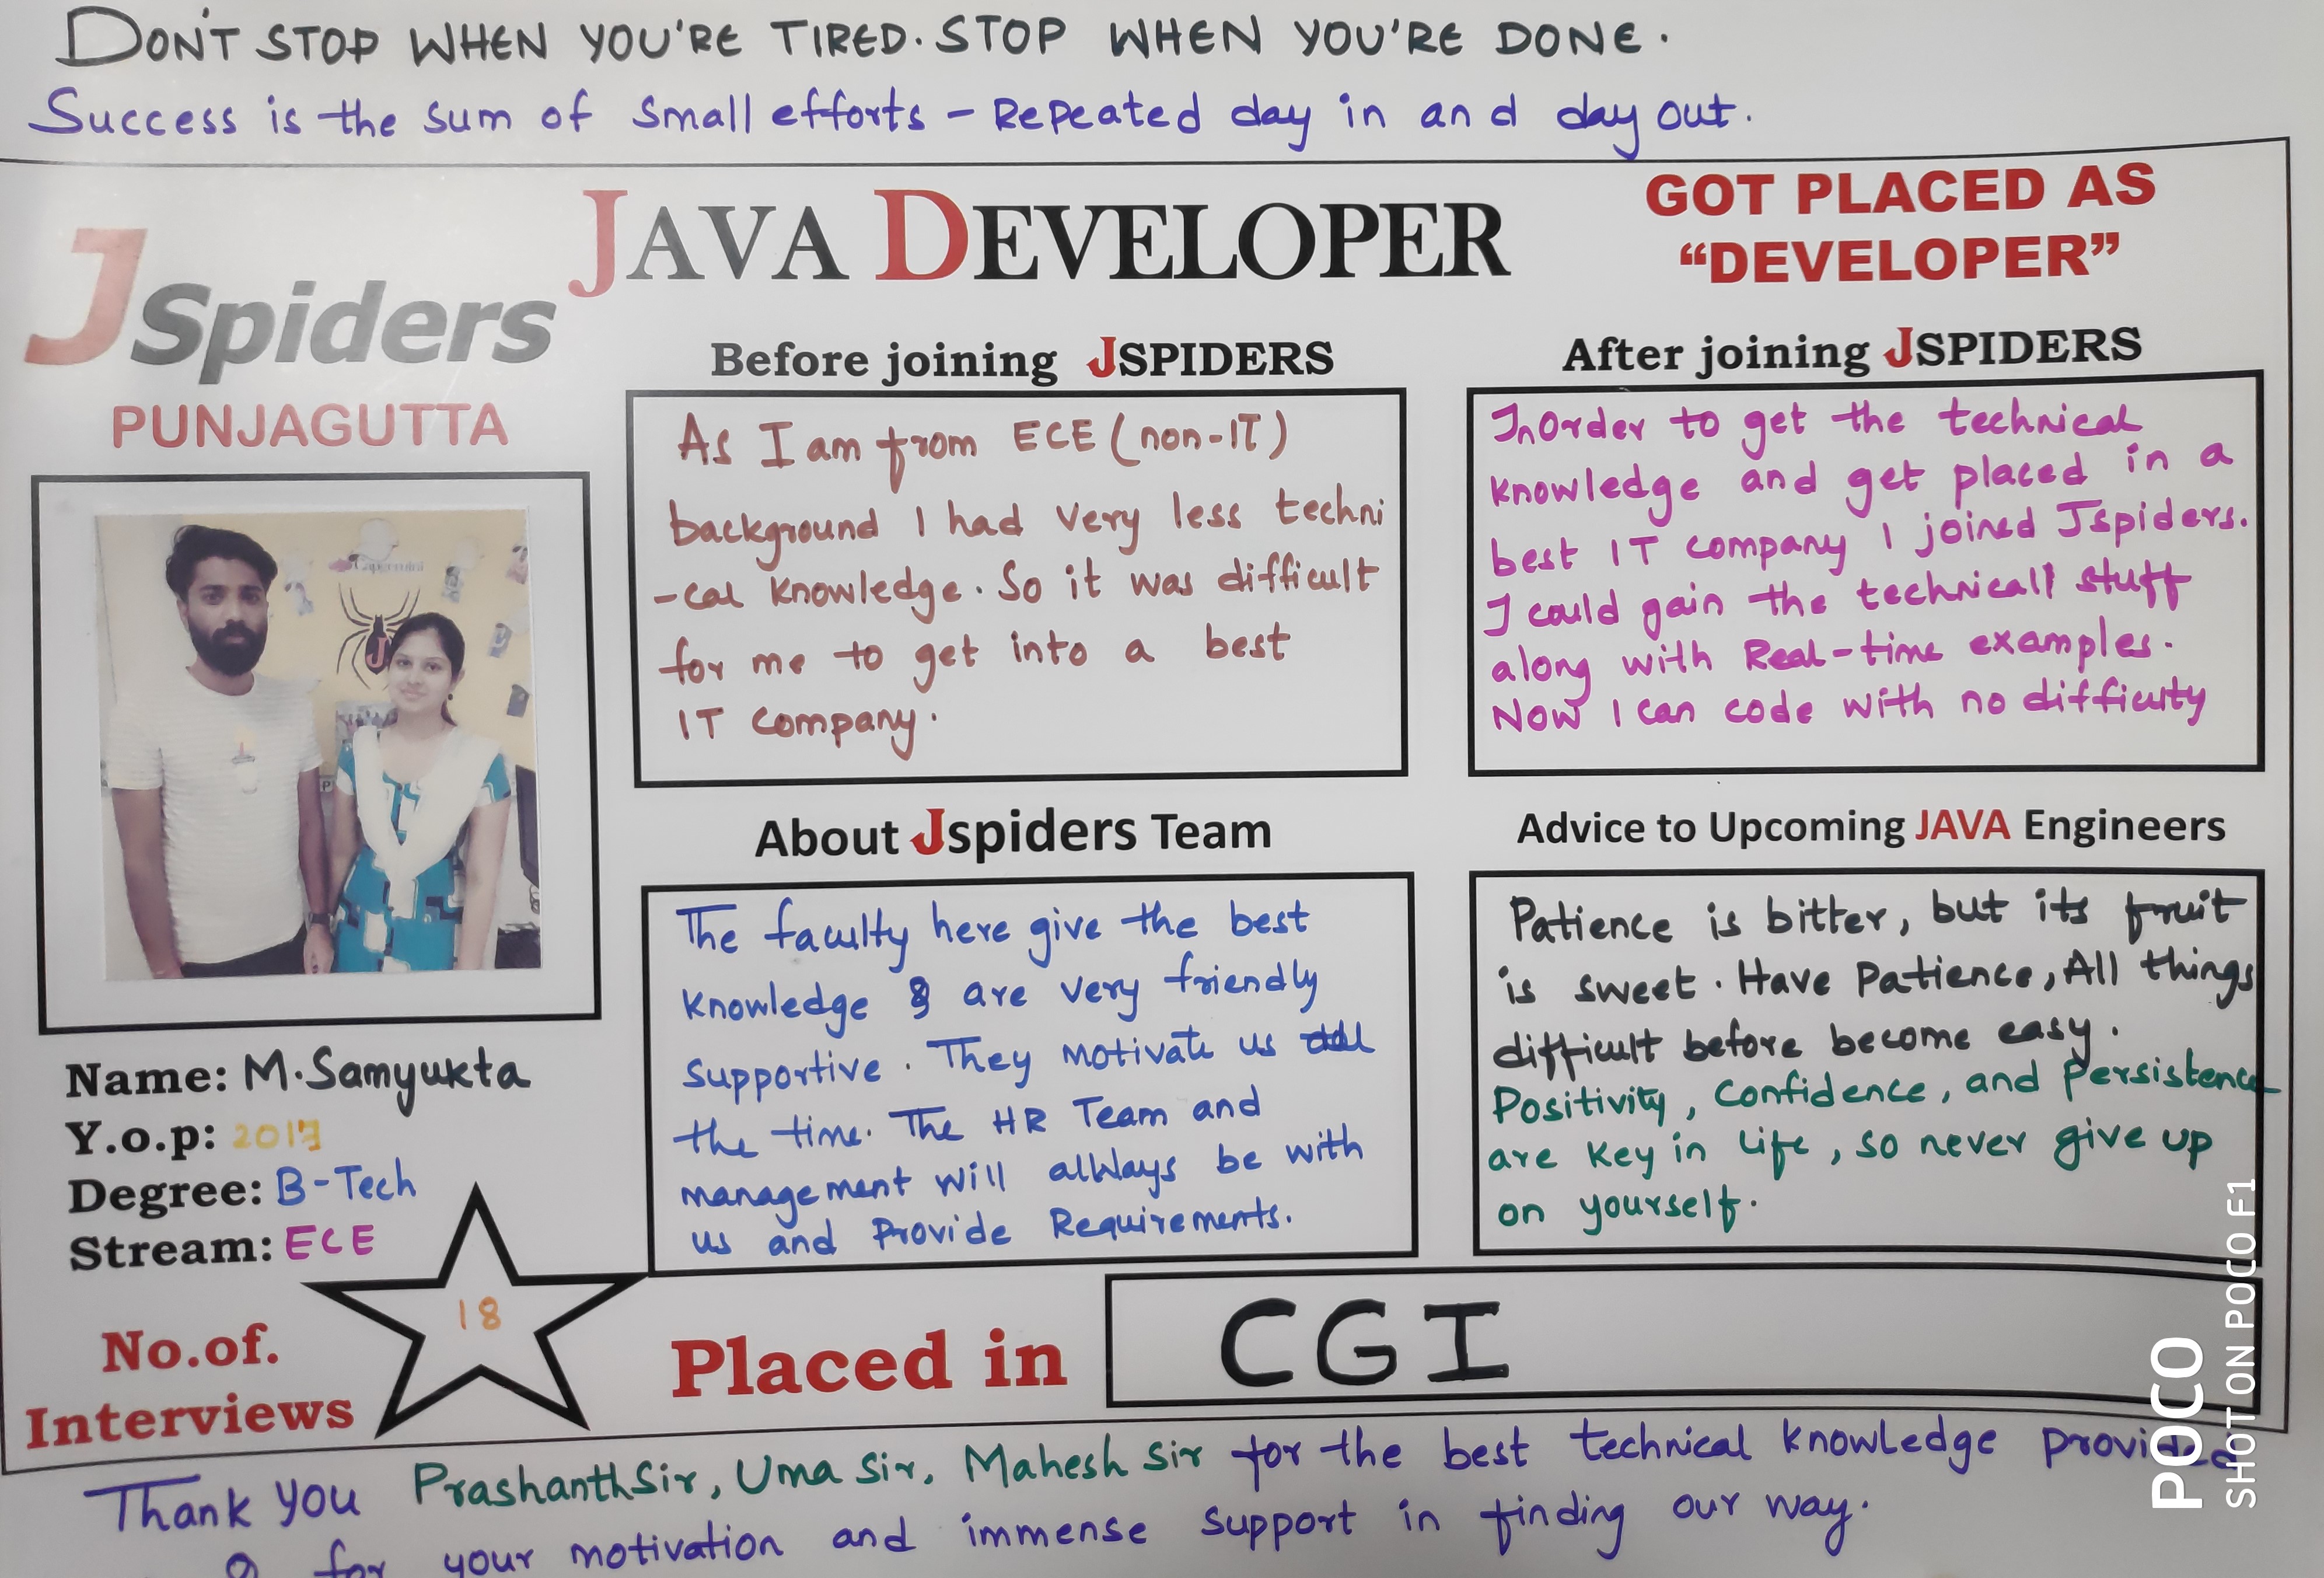 DON'T STOP WHEN YOU'RE TIRED. STOP WHEN YOU'RE DONE.
Success is the sum of small efforts - Repeated day in and day out.
JSpiders
PUNJAGUTTA
JAVA DEVELOPER
GOT PLACED AS
“DEVELOPER”
Before joining JSPIDERS
As I am from ECE (non-IT)
background I had very less techni
-cal knowledge. So it was difficult
for me to get into a best
IT company.
After joining JSPIDERS
Inorder to get the technical
knowledge and get placed in a
best IT company I joined Jspiders.
I could gain the technicall stuff
along with Real-time examples.
Now I can code with no difficulty
Capgemini
J
About Jspiders Team
The faculty here give the best
knowledge & are very friendly
supportive. They motivate us all
the time. The HR Team and
management will allways be with
us and Provide Requirements.
Advice to Upcoming JAVA Engineers
Patience is bitter, but its fruit
is sweet. Have Patience, All things
difficult before become easy.
Positivity, Confidence, and Persistence
are key in life, so never give up
on yourself.
Name: M. Samyukta
Y.o.p: 2017
Degree: B-Tech
Stream: ECE
No.of.
Interviews
18
Placed in
CGI
Thank you Prashanth Sir, Uma Sir, Mahesh Sir for the best technical knowledge provided
& for your motivation and immense support in finding our way.
POCO
SHOT ON POCO F1